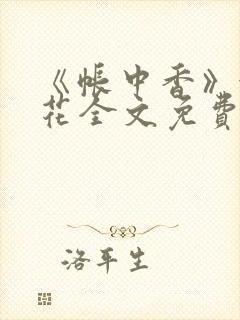 《帐中香》
花全文免費
洛平生